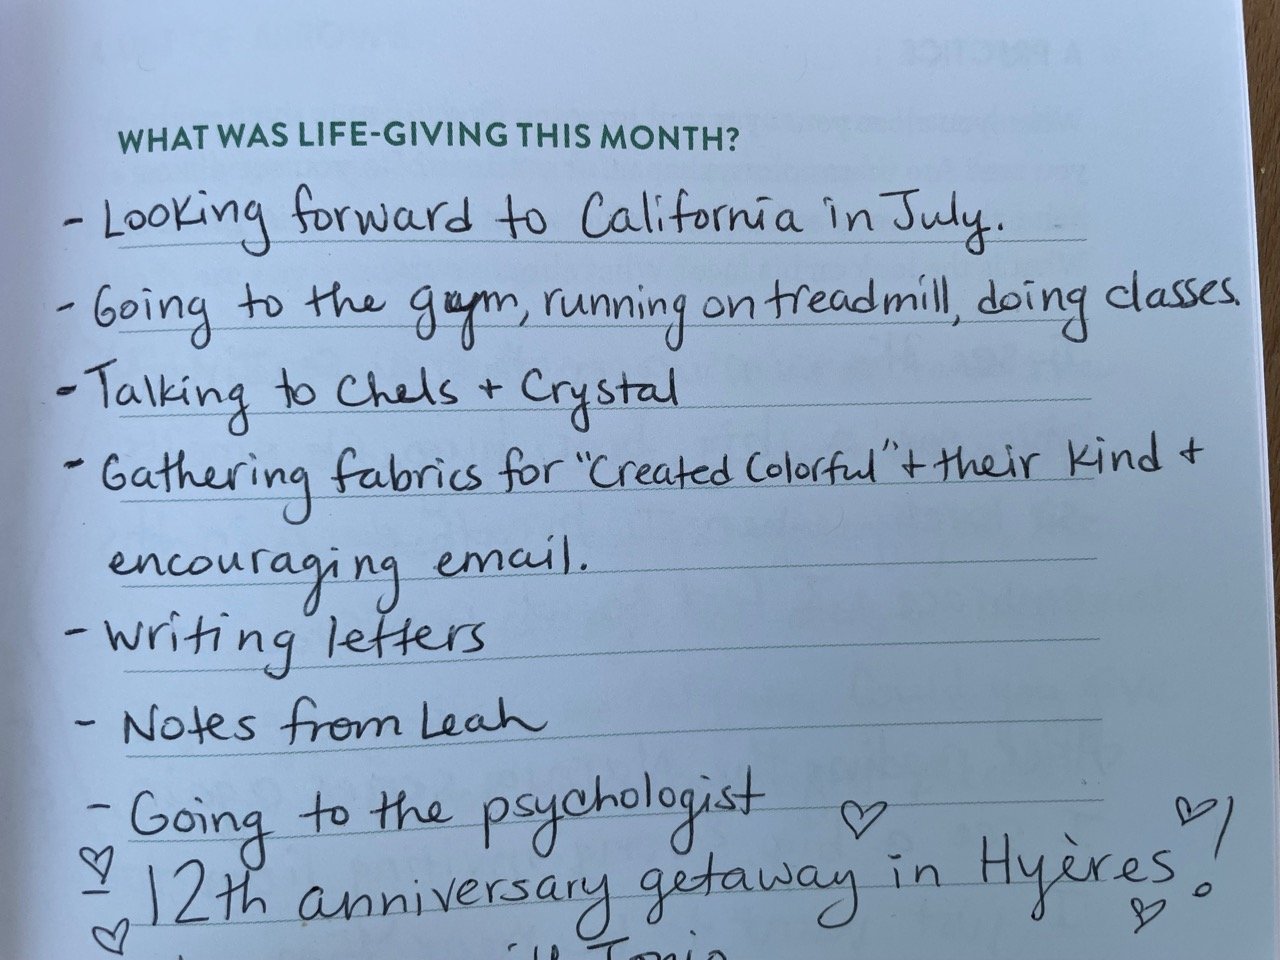 WHAT WAS LIFE-GIVING THIS MONTH?
- Looking forward to California in July.
- Going to the gym, running on treadmill, doing classes.
- Talking to Chels + Crystal
- Gathering fabrics for "Created Colorful" + their kind +
encouraging email.
- Writing letters
- Notes from Leah
- Going to the psychologist
- 12th anniversary getaway in Hyères!